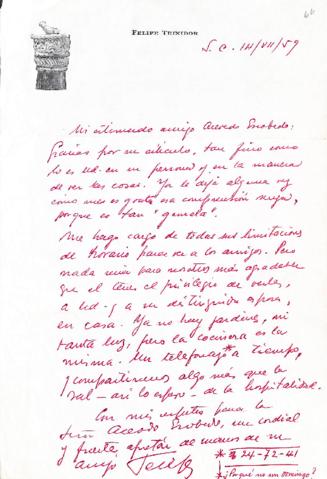 66
FELIPE TEIXIDOR
S. C. III/VII/59
Mi estimado amigo Acevedo Escobedo:
Gracias por su artículo, tan fino como
lo es Ud. en su persona y en la manera
de ver las cosas. Ya le dejé alguna vez
como me es grata esa comprensión suya,
porque es tan
Me hago cargo de todas sus limitaciones
de horario para ver a los amigos. Pero
nada sería para nosotros más agradable
que el tener el privilegio de verles,
a Ud. y a su distinguida esposa,
en casa. Ya no hay jardines, ni
tanta luz, pero la cocinera es la
misma. Un telefonazo* a tiempo,
y compartiremos algo más que la
sal – así lo espero – de la hospitalidad.
Con mis respetos para la
Sra. Acevedo Escobedo, un cordial
y fuerte apretón de manos de su
amigo Felipe
* = 24-72-41
¿Porqué no un Domingo?